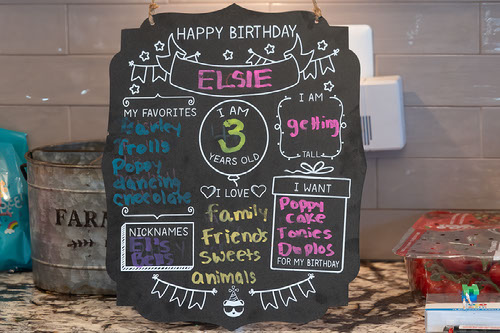 HAPPY BIRTHDAY
ELSIE
MY FAVORITES
Trolls
Poppy
dancing
chocolate
I AM
3
YEARS OLD
I AM
getting
TALL
I LOVE
family
friends
sweets
animals
I WANT
Poppy
cake
Tonies
Duplos
FOR MY BIRTHDAY
NICKNAMES
Els
FAR